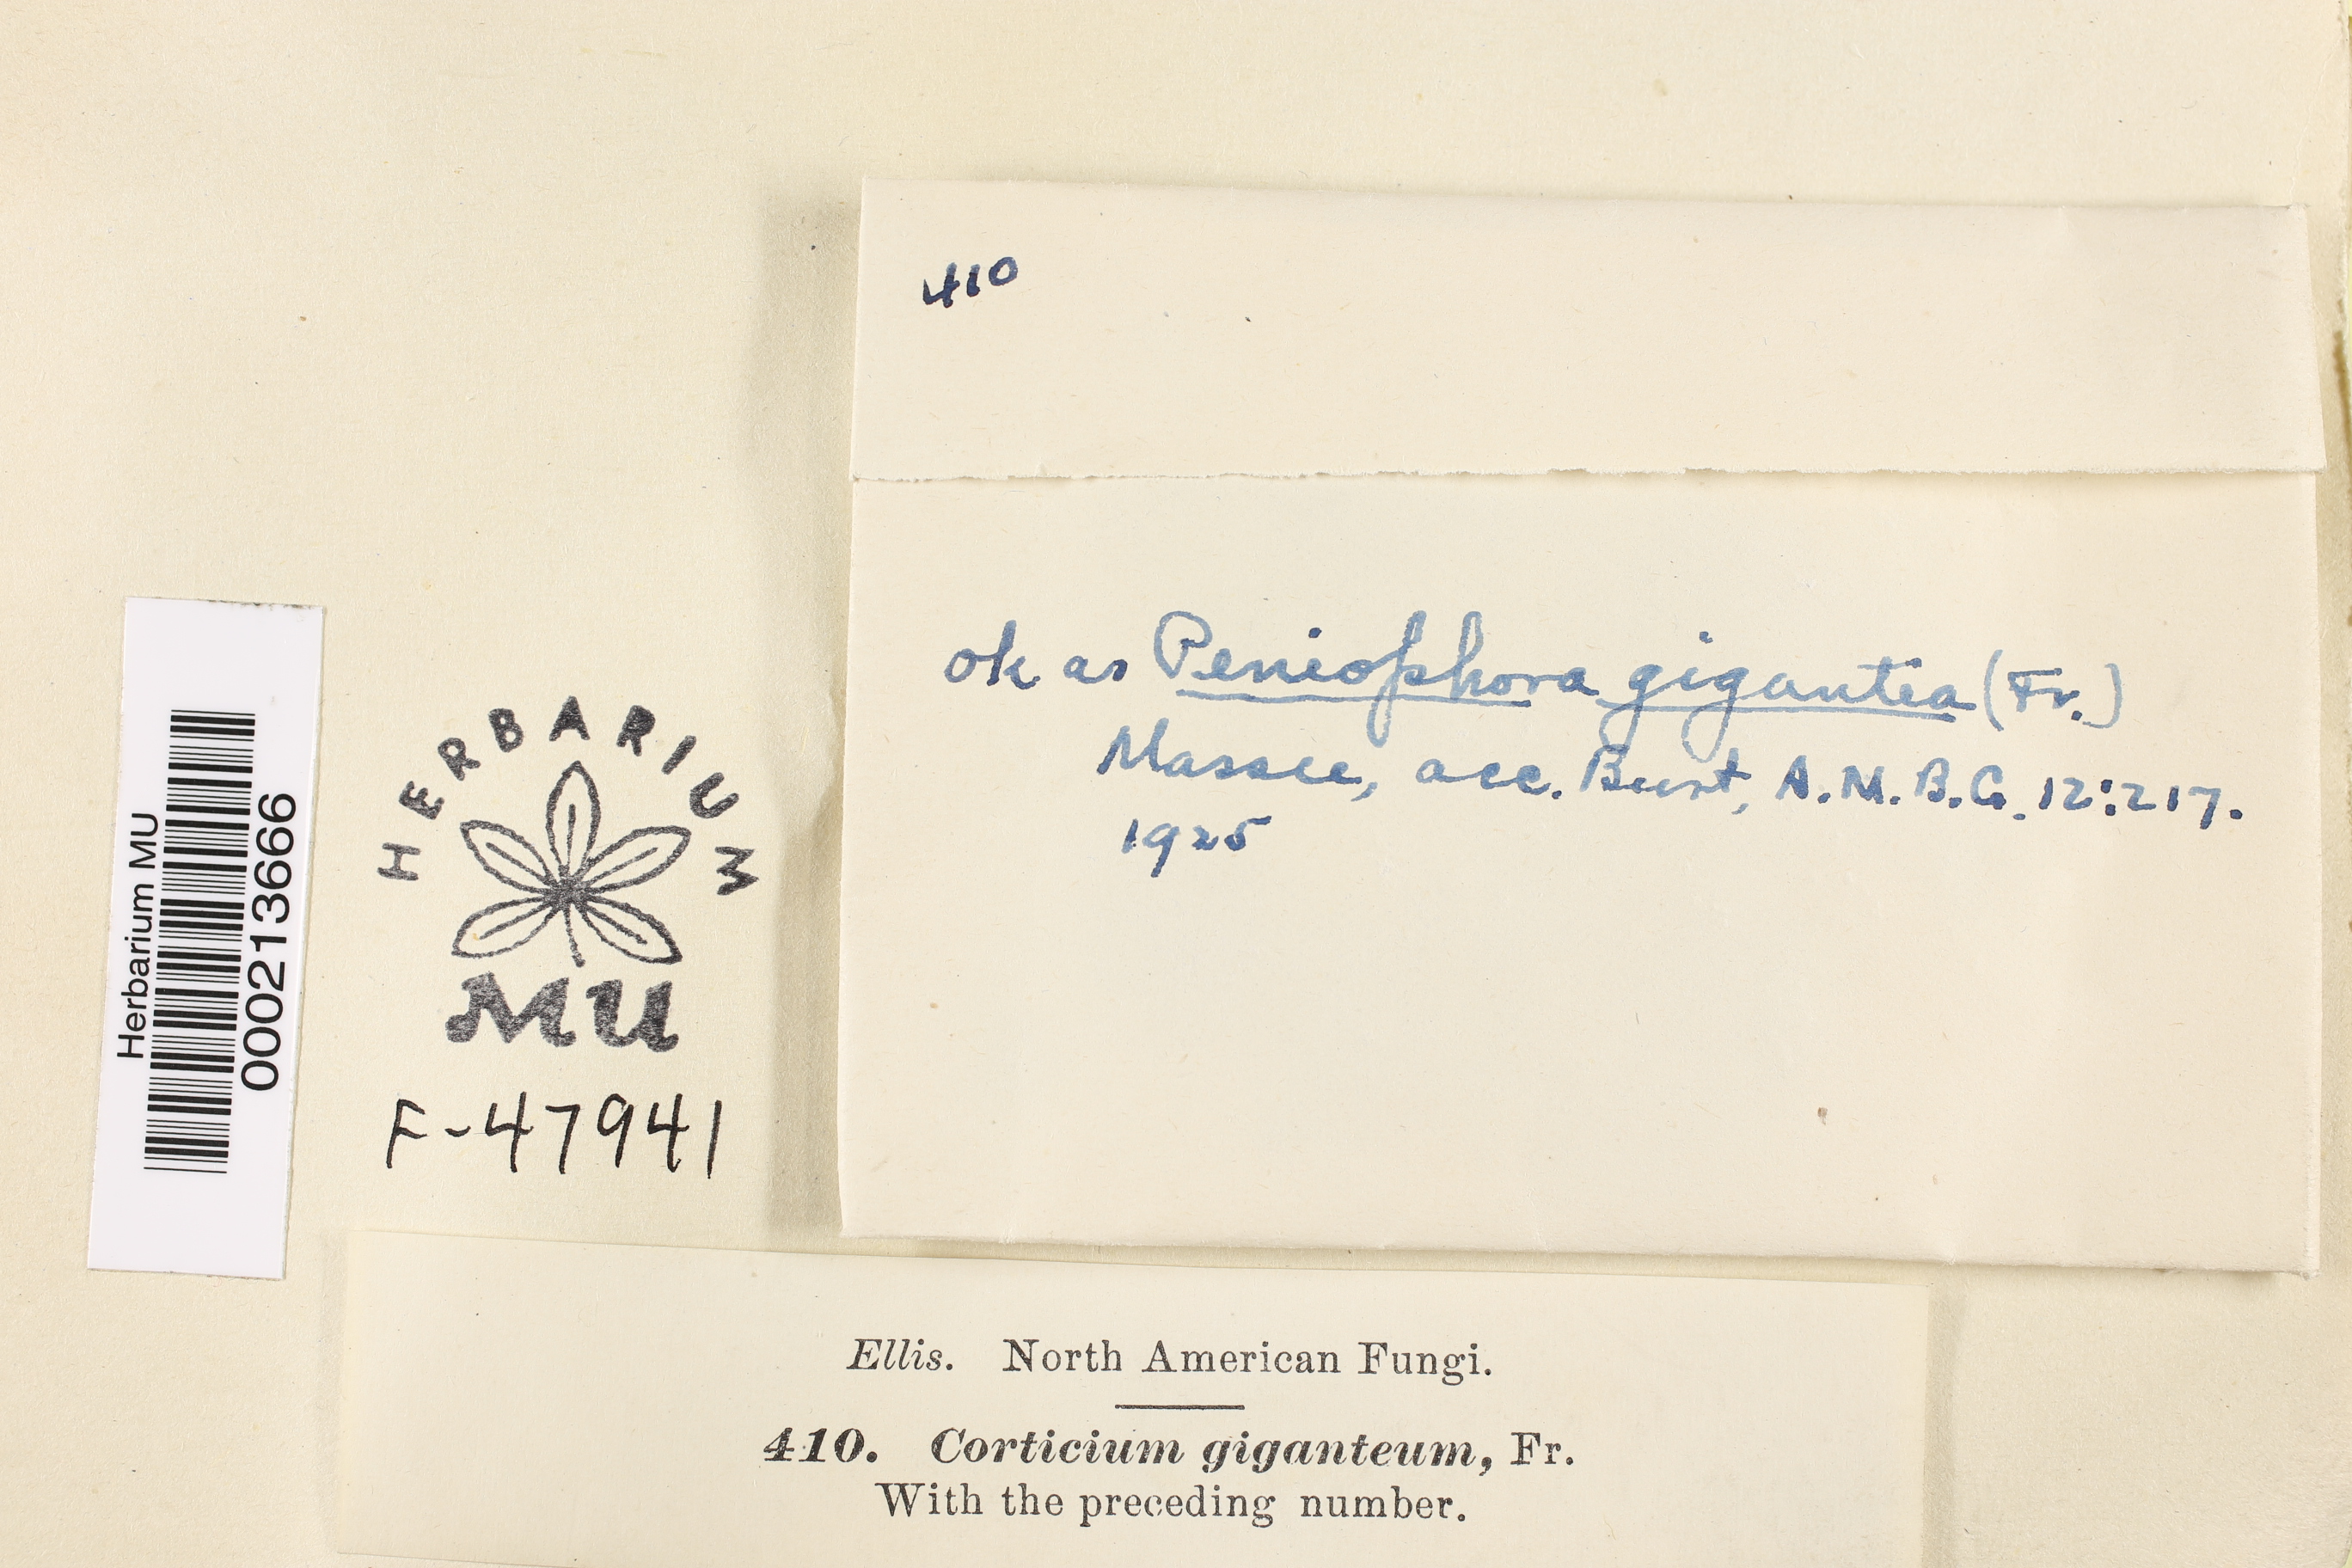 410
ok as Peniophora gigantea (Fr.)
Massee, acc. Burt, A.M.B.G. 12:217.
1925
Herbarium MU
000213666
HERBARIUM
MU
F-47941
Ellis. North American Fungi.
410. Corticium giganteum, Fr.
With the preceding number.